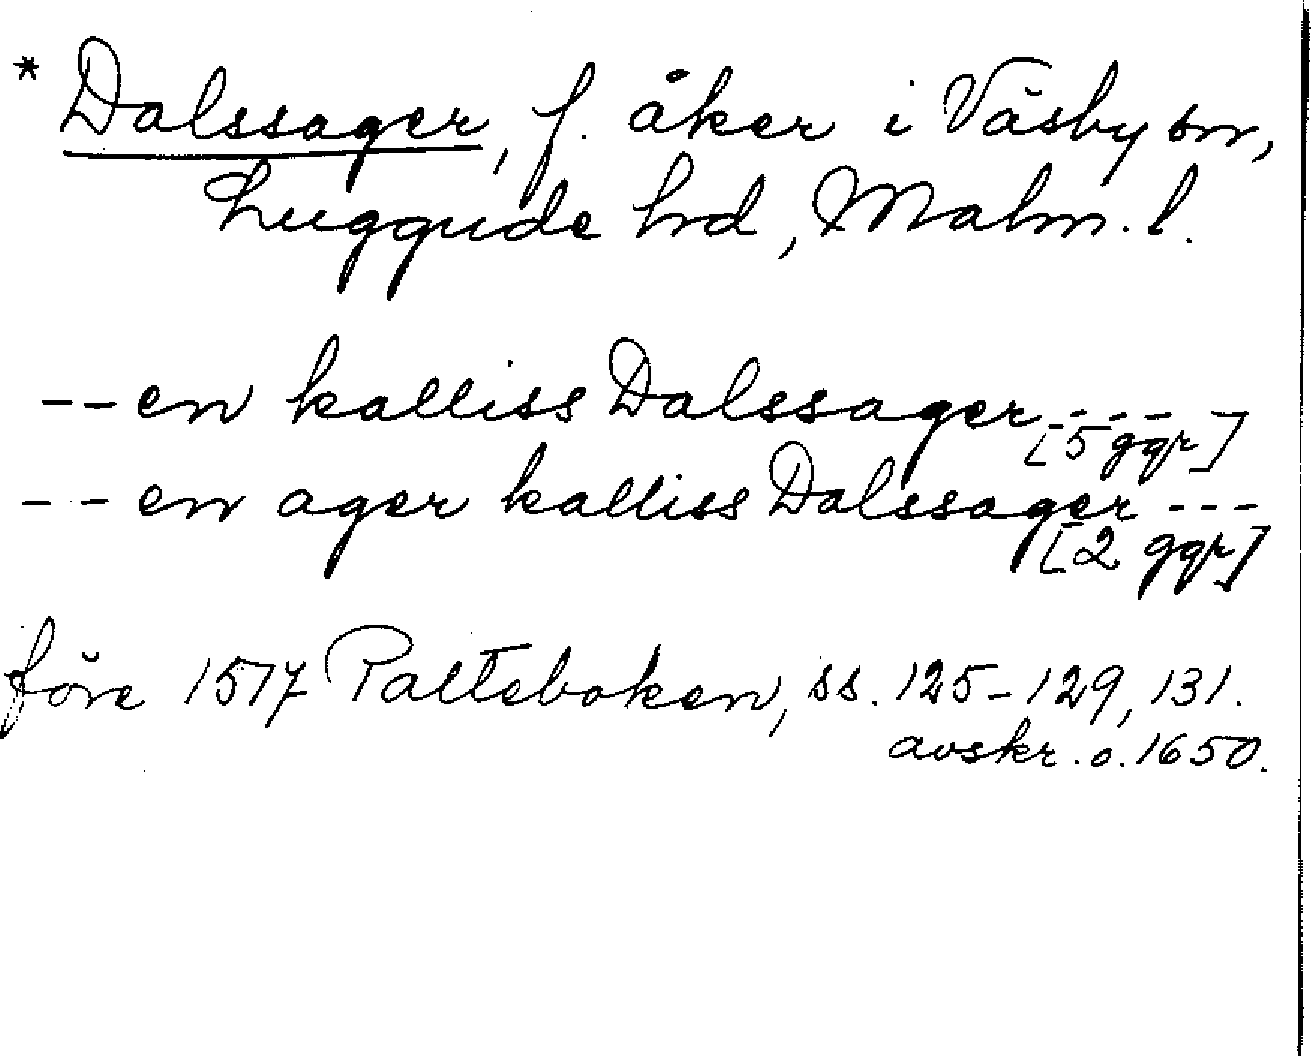 * Dalssager, f. åker i Väsby sn,
Luggude hd, Malm. l.
-- en kalliss Dalssager ----
[5 ggr]
-- en ager kalliss Dalssager ---
[2 ggr]
före 1517 Palteboken, ss. 125-129, 131.
avskr. o. 1650.